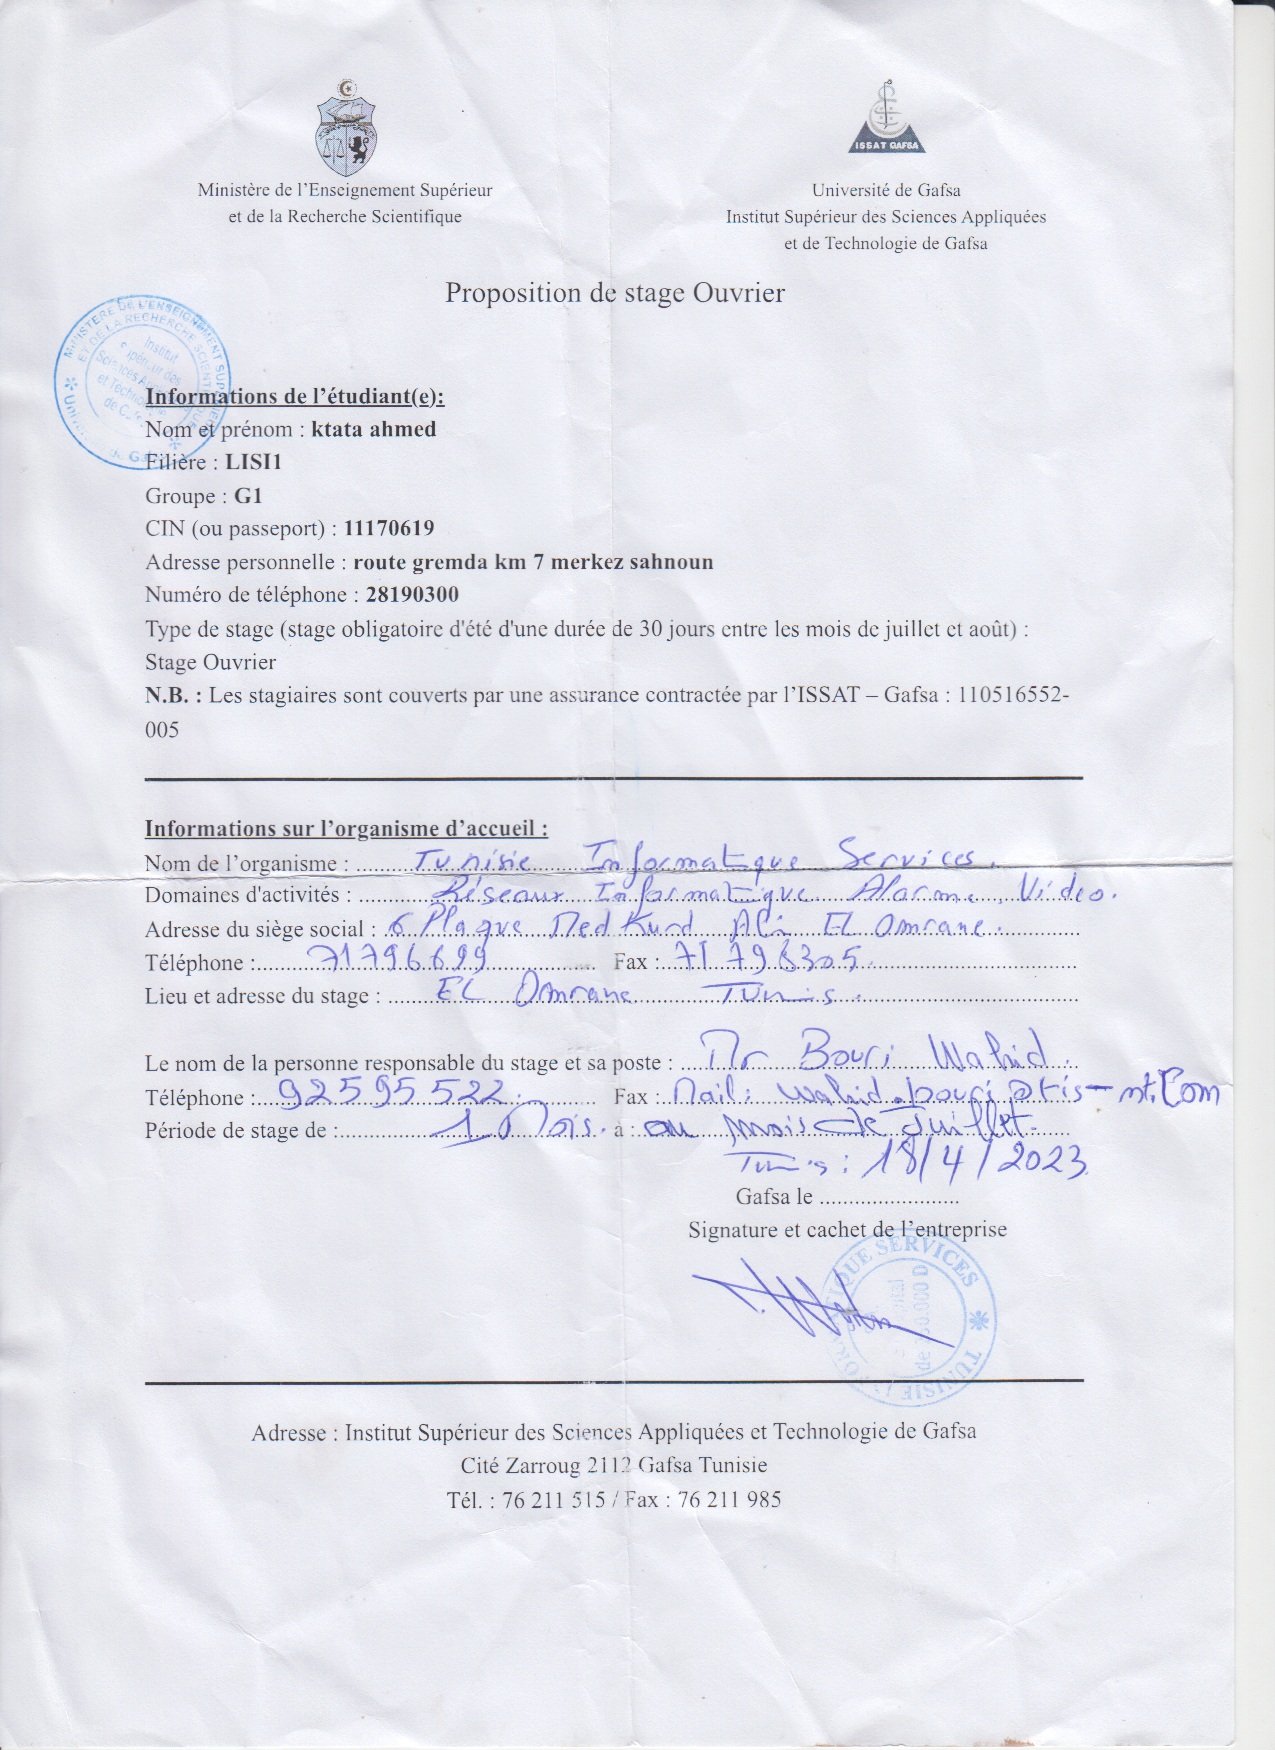 ISSAT GAFSA
Ministère de l'Enseignement Supérieur
et de la Recherche Scientifique
Université de Gafsa
Institut Supérieur des Sciences Appliquées
et de Technologie de Gafsa
Proposition de stage Ouvrier
Informations de l'étudiant(e):
Nom et prénom : ktata ahmed
Filière : LISI1
Groupe : G1
CIN (ou passeport) : 11170619
Adresse personnelle : route gremda km 7 merkez sahnoun
Numéro de téléphone : 28190300
Type de stage (stage obligatoire d'été d'une durée de 30 jours entre les mois de juillet et août) :
Stage Ouvrier
N.B. : Les stagiaires sont couverts par une assurance contractée par l'ISSAT – Gafsa : 110516552-
005
Informations sur l'organisme d'accueil :
Nom de l'organisme : Tunisie Informatique Services.
Domaines d'activités : Réseaux Informatique Alarme, Vidéo.
Adresse du siège social : 6 Plaque Med Kurd Ali EL Omrane.
Téléphone : 71796699 Fax : 71 798305.
Lieu et adresse du stage : EL Omrane Tunis.
Le nom de la personne responsable du stage et sa poste : Mr Bouri Wahid.
Téléphone : 92595522. Fax : Mail: wahid.bouri@tis-nt.Com
Période de stage de : 1 Mois. à : au mois de Juillet.
Tunis : 18/4/2023
Gafsa le ........................
Signature et cachet de l'entreprise
Adresse : Institut Supérieur des Sciences Appliquées et Technologie de Gafsa
Cité Zarroug 2112 Gafsa Tunisie
Tél. : 76 211 515 / Fax : 76 211 985